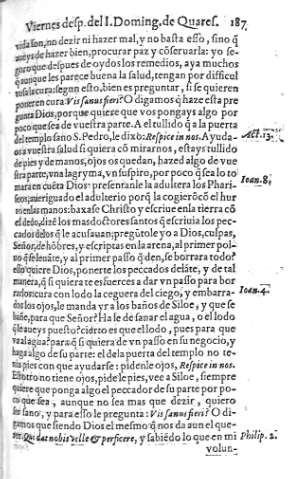 Viernes desp. del I. Doming. de Quares. 187
vida son, no dezir ni hazer mal, y no basta esso, sino q̃
aueys de hazer bien, procurar paz y cõseruarla: yo se-
guro que despues de oydos los remedios, aya muchos
q̃ aunque les parece buena la salud, tengan por dificul
tosa la cura: segun esto, bien es preguntar, si se quieren
poner en cura. Vis sanus fieri? O digamos q̃ haze esta pre
gunta Dios, porque quiere que vos pongays algo por
poco que sea de vuestra parte. A el tullido q̃ a la puerta
del templo sano S. Pedro, le dixo: Respice in nos. Ayuda- Act. 3.
os a vuestra salud si quiera cõ mirarnos, estays tullido
de pies y de manos, ojos os quedan, hazed algo de vue
stra parte, vna lagryma, vn suspiro, por poco q̃ sea lo to
mara en cuẽta Dios: presentanle la adultera los Phari- Ioan. 8.
seos, aueriguado el adulterio porq̃ la cogierõ cõ el hur
to en las manos: baxase Christo y escriue en la tierra cõ
el dedo, dizẽ los mas doctores santos q̃ escriuia los pec
cados de los q̃ le acusauan; pregũtole yo a Dios, culpas,
Señor, de hõbres, y escriptas en la arena, al primer pol-
uo q̃ se leuãte, y al primer passo q̃ den, se borrara todo?
esso quiere Dios, ponerte los peccados delãte, y de tal
manera, q̃ si quiera te esfuerces a dar vn passo para bor
rarlos: cura con lodo la ceguera del ciego, y embarra- Ioan. 4.
dos los ojos, le manda yr a los baños de Siloe, y que se
bañe, para que Señor? Ha le de sanar el agua, o el lodo
q̃ le aueys puesto? cierto es que el lodo, pues para que
va al agua? para q̃ si quiera de vn passo en su negocio, y
haga algo de su parte: el de la puerta del templo no te-
nia pies con que ayudarse: pidenle ojos, Respice in nos.
Estotro no tiene ojos, pidẽle pies, vee a Siloe, siempre
quiere que ponga algo el peccador de su parte por po-
co que sea, aunque no sea mas que dezir, quiero
ser sano, y para esso le pregunta: Vis sanus fieri? O di-
gamos que siendo Dios el mesmo q̃ nos da aun el que-
rer: Qui dat nobis velle & perficere, y sabiẽdo lo que en mi Philip. 2.
volun-